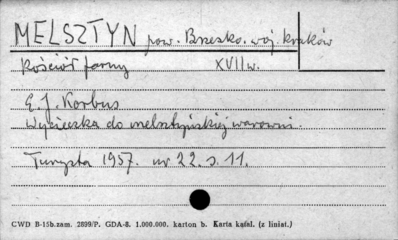 MELSZTYN pow. Brzesko. woj. kraków
Kościół farny XVII w.
E. J. Korbus
Wycieczka do melsztyńskiej warowni.
Turysta 1957. nr 22. s. 11.
CWD B-15b.zam. 2899/P. GDA-8. 1.000.000. karton b. Karta katal. (z liniat.)